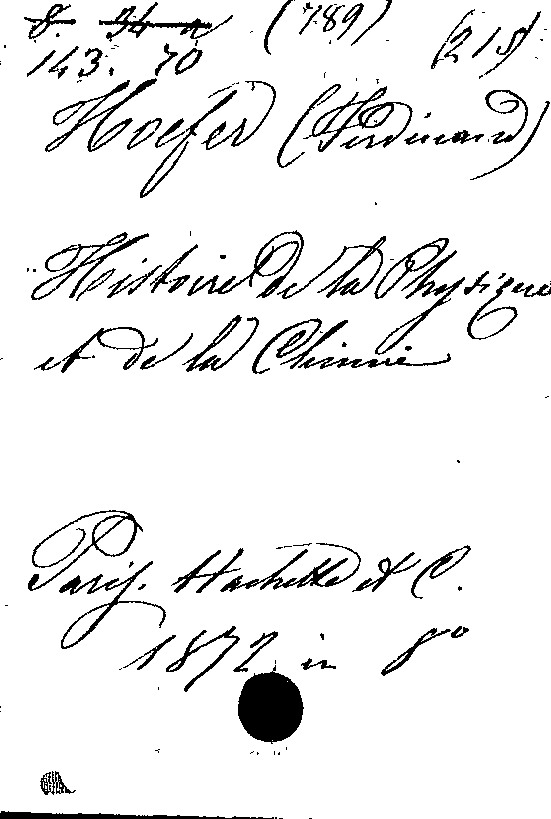 8. 34 a (789) (215)
143. 70
Hoefer (Ferdinand)
Histoire de la Physique
et de la Chimie
Paris. Hachette et C.
1872 in 8º